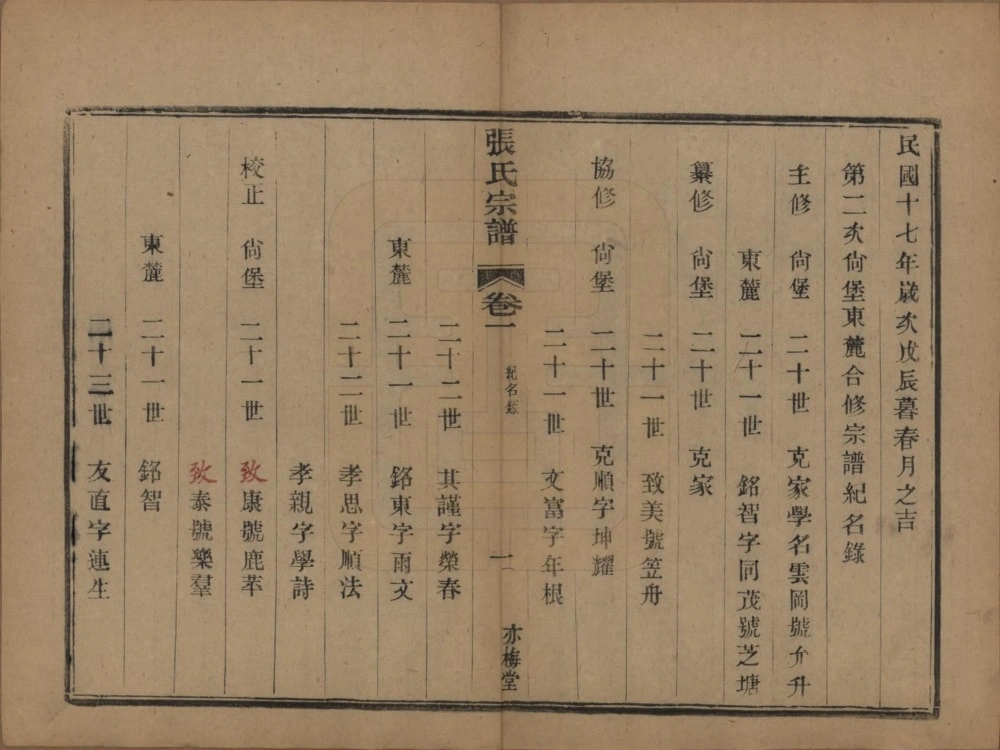 民國十七年歲次戊辰暮春月之吉
第二次尙堡東麓合修宗譜紀名錄
主修　尙堡　二十世　克家學名雲岡號允升
東麓　二十一世　銘智字同茂號芝塘
纂修　尙堡　二十世　克家
二十一世　致美號笠舟
協修　尙堡　二十世　克順字坤耀
二十一世　文富字年根
張氏宗譜　卷一　紀名錄　一　亦梅堂
二十二世　其謹字榮春
東麓　二十一世　銘東字雨文
二十二世　孝思字順法
孝親字學詩
校正　尙堡　二十一世　致康號鹿苹
致泰號樂羣
東麓　二十一世　銘智
二十三世　友直字連生